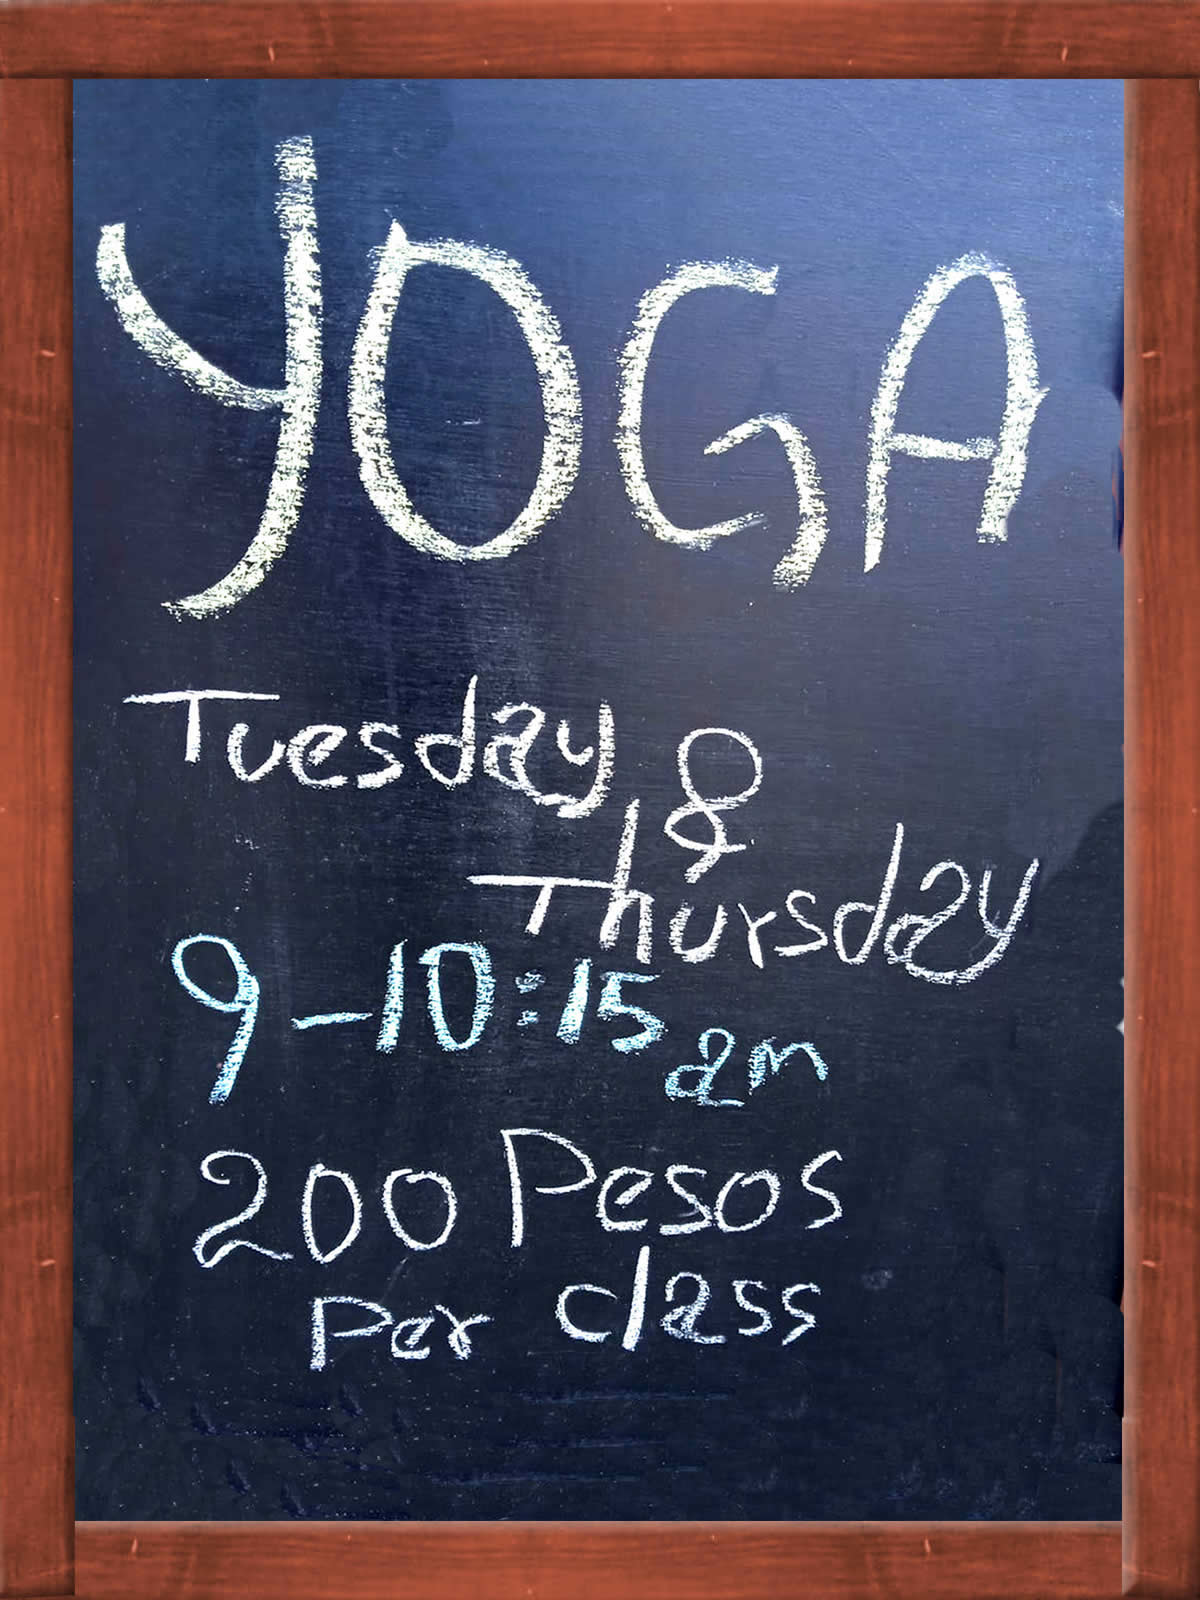 YOGA
Tuesday &
Thursday
9-10:15 am
200 Pesos
Per class